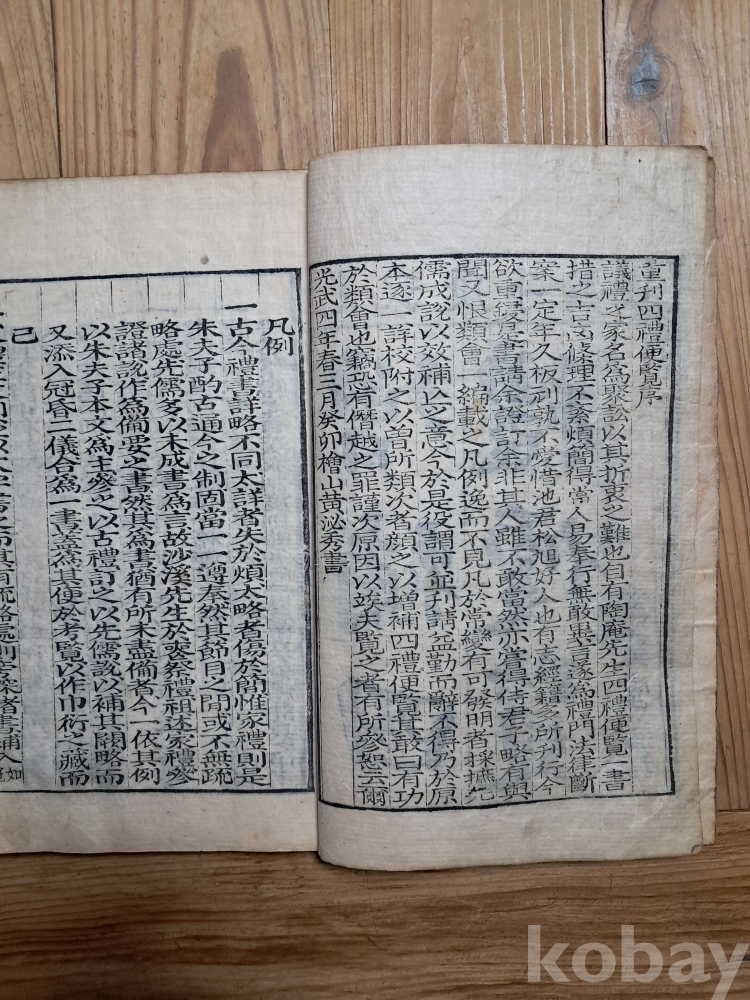 重刊四禮便覽序
議禮之家名爲聚訟以其折衷之難也自有陶庵先生四禮便覽一書
措之古而條理不紊煩簡得常人易奉行無敢異言遂爲禮門法律斷
案一定年久板刓孰不爱惜池君松旭好人也有志經籍多所刊行今
欲重鋟是書請余證訂余非其人雖不敢當然亦嘗得侍君子略有與
聞又恨類會一編載之凡例逸而不見凡於常變有可發明者採摭先
儒成說以效補亾之意今於是役謂可並刊請益勤而辭不得乃於原
本逐一詳校附之以曾所類次者顔之以增補四禮便覽其敢曰有功
於類會也竊恐有僭越之罪謹次原因以竢夫覽之者有所參恕云爾
光武四年春三月癸卯檜山黄泌秀書
凡例
一古今禮書詳略不同太詳者失於煩太略者傷於簡惟家禮則是
朱夫子酌古通今之制固當一一遵奉然其節目之間或不無疏
略處先儒多以未成書爲言故沙溪先生於喪祭禮祖述家禮參
證諸說作爲備要之書然其爲書猶有所未盡備者今一依其例
以朱夫子本文爲主參之以古禮訂之以先儒說以補其闕略而
又添入冠昏二儀合爲一書盖爲其便於考覽以作巾衍之藏而
已
kobay